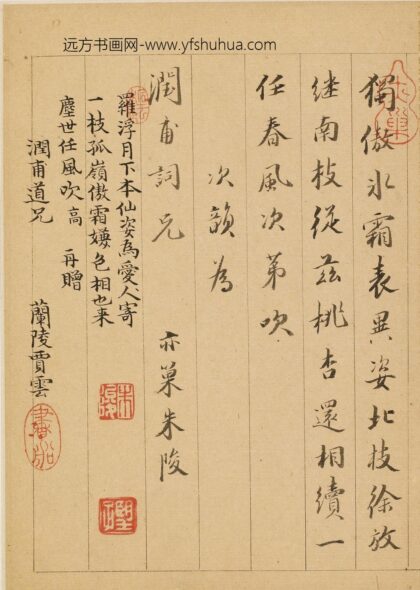 远方书画网-www.yfshuhua.com
獨傲冰霜表異姿北枝徐放
继南枝從茲桃杏還相續一
任春風次第吹
次韻為
潤甫詞兄
亦巢朱陵
羅浮月下本仙姿為愛人寄
一枝孤嶺傲霜媖色相也来
塵世任風吹高 再贈
潤甫道兄
蘭陵賈雲
朱陵